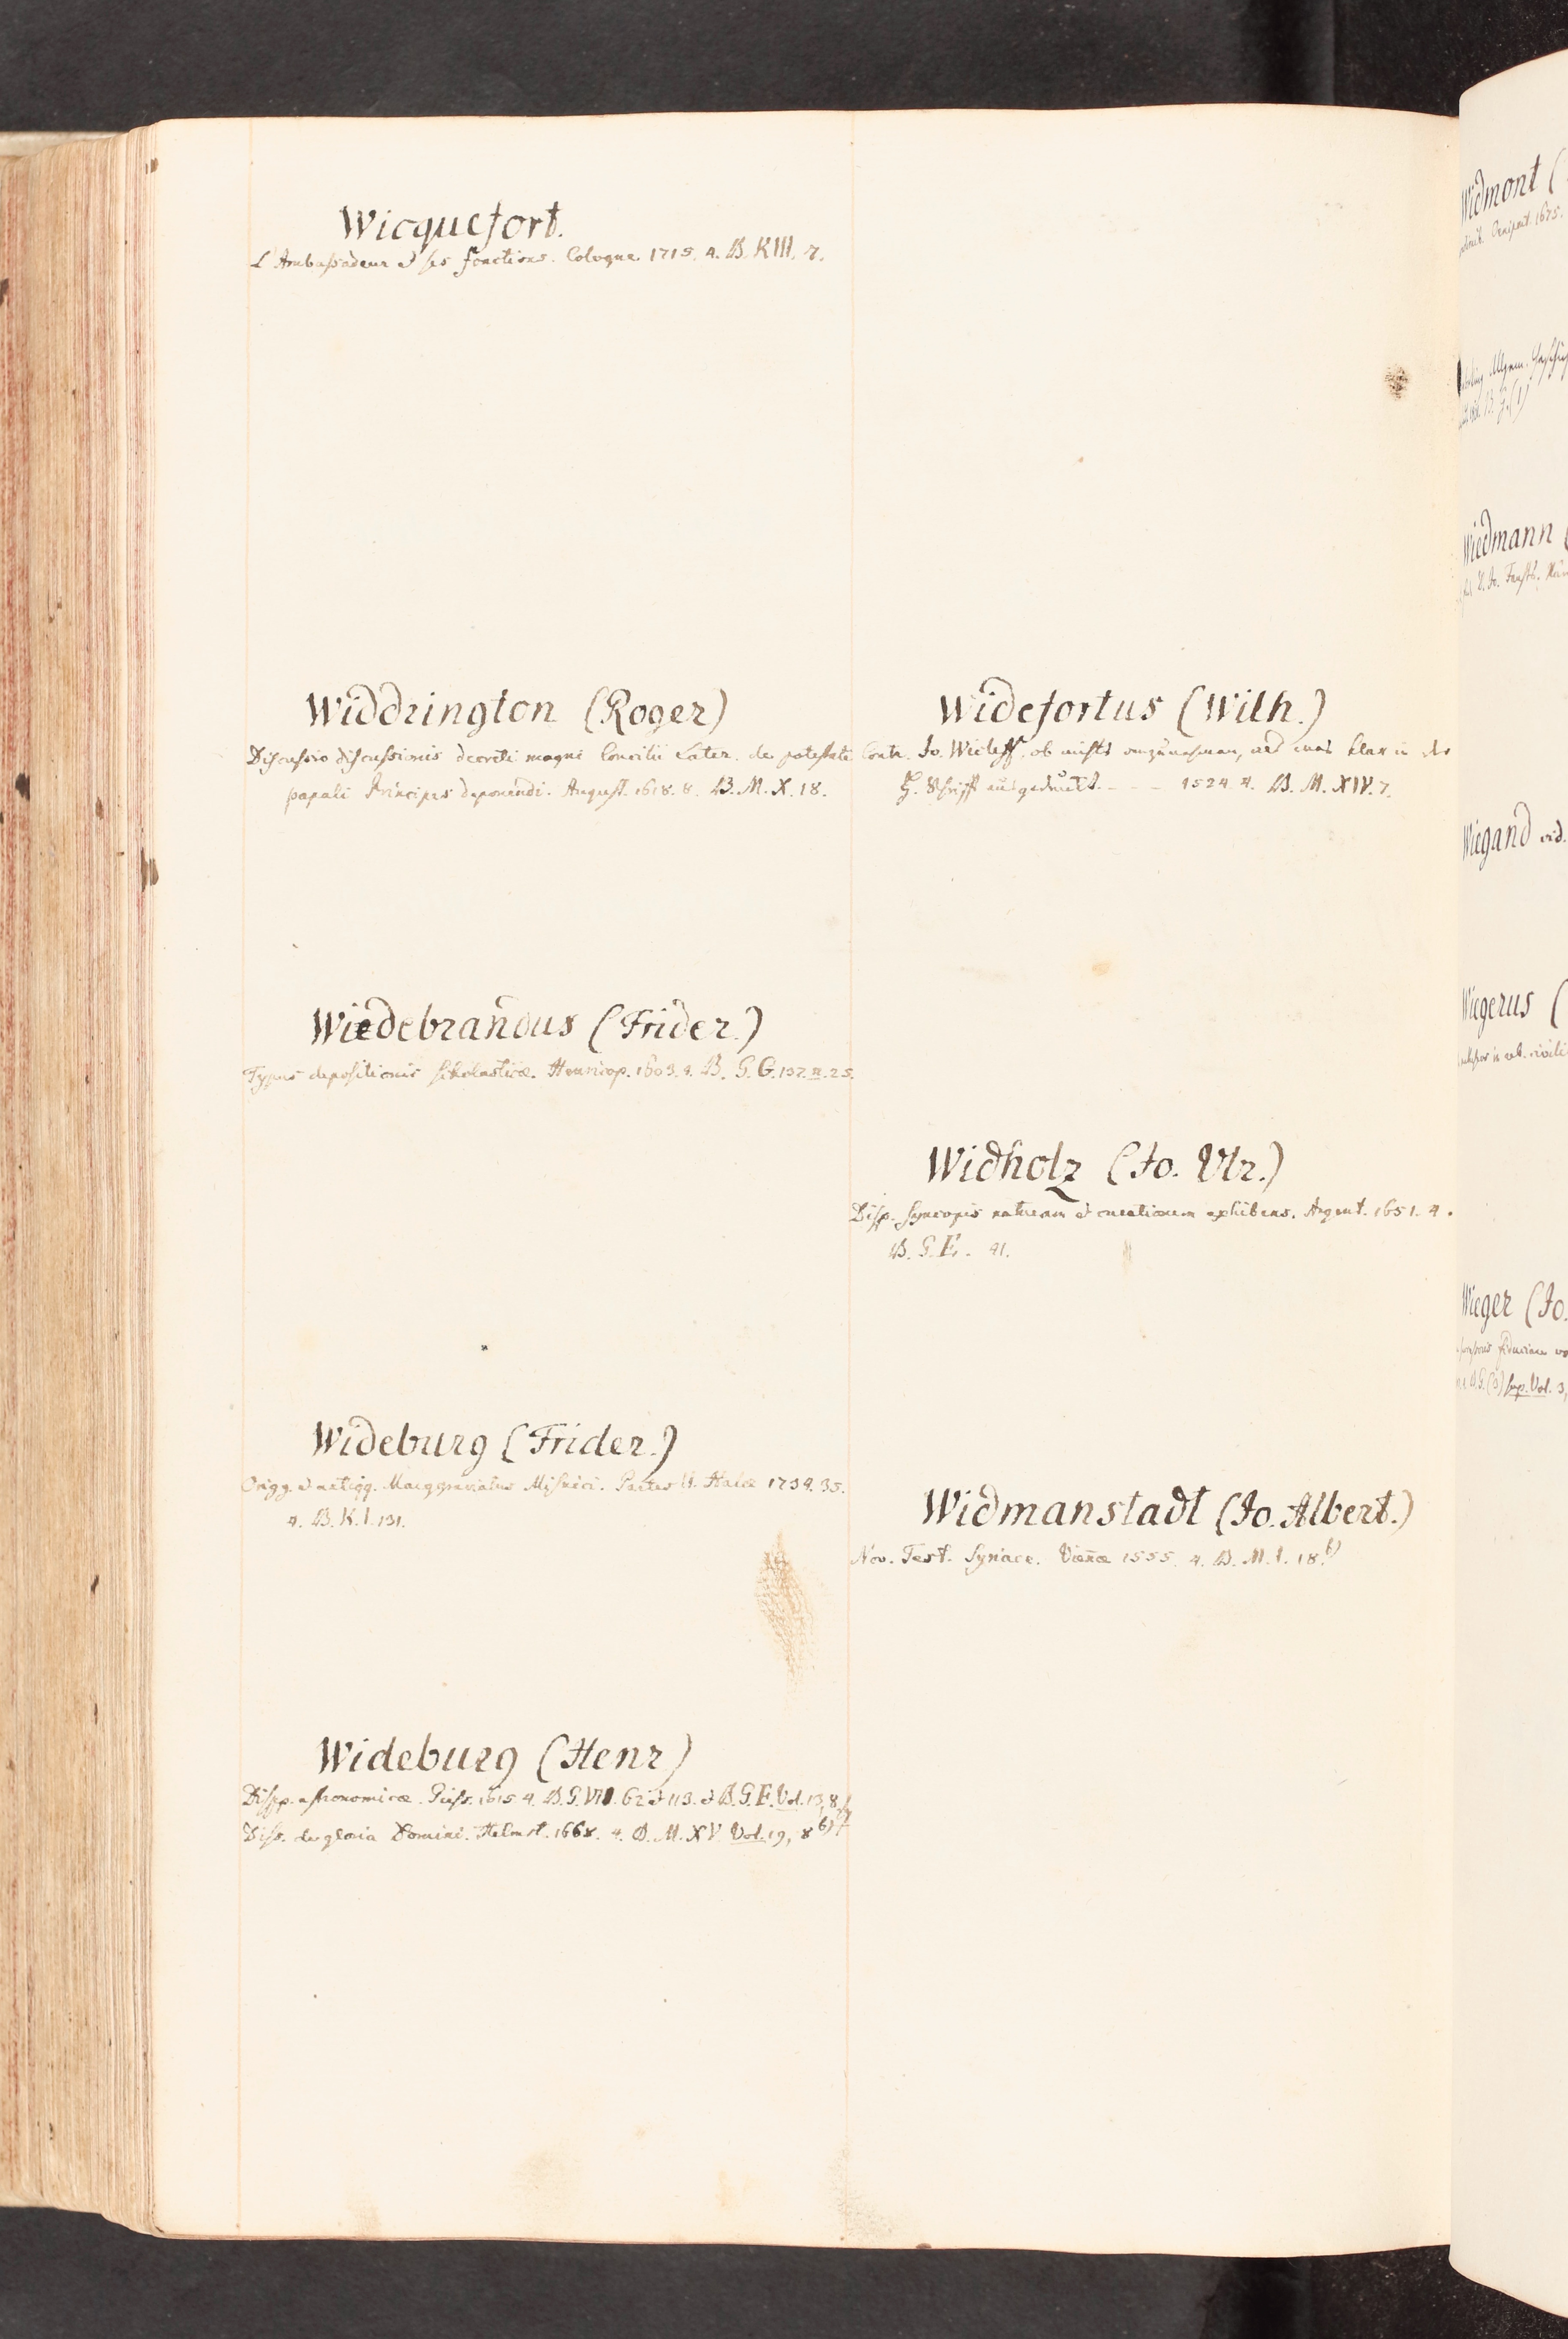 Wicquefort.
L'Ambassadeur & ses fonctions. Cologne. 1715. 4. B. K III. 7.
Widdrington (Roger)
Discussio discussionis decreti magni Concilii Later. de potestate
papali Principes deponendi. August. 1618. 8. B. M. X. 18.
Wiedebrandus (Frider.)
Typus depositionis scholasticæ. Henricop. 1603. 4. B. G. G. 132. n. 25.
Wideburg (Frider.)
Origg. & antiqq. Marggraviatus Misnici. Partes II. Halæ 1734. 35.
4. B. K. I. 131.
Wideburg (Henr)
Dispp. astronomicæ. Giess. 1615 4. B. G. VII. 62 & 113. & B. G. E. Vol. 13, 8
Diss. de gloria Domini. Helmst. 1668. 4. B. M. XV. Vol. 19, 8 b)
Widefortus (Wilh.)
Contr. Jo. Wicleff. ob nichts anzunehmen, als was klar in der
H. Schrifft ausgedruckt. - - - 1524. 4. B. M. XIV. 7.
Widholz (Jo. Vlr.)
Disp. Syncopis naturam & curationem exhibens. Argent. 1651. 4.
B. G. E. 41.
Widmanstadt (Jo. Albert.)
Nov. Test. Syriace. Vieñæ 1555. 4. B. M. I. 18. b)
Widmont (
1675.
Allgem.
Wiedmann (
Jo. Fausts.
Wiegand vid.
Wiegerus (
Wieger (Jo.
Sup. Vol. 3,